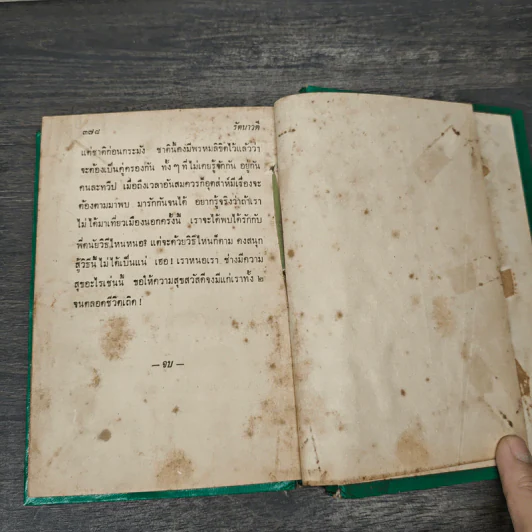 ๓๗๘ รัตนาวดี
แต่ชาติก่อนกระมัง ชาตินี้คงมีพรหมลิขิตไว้แล้วว่า
จะต้องเป็นคู่ครองกัน ทั้ง ๆ ที่ไม่เคยรู้จักกัน อยู่กัน
คนละทวีป เมื่อถึงเวลาอันสมควรก็อุตส่าห์มีเรื่องจะ
ต้องตามมาพบ มารักกันจนได้ อยากรู้จริงว่าถ้าเรา
ไม่ได้มาเที่ยวเมืองนอกครั้งนี้ เราจะได้พบได้รักกับ
พี่ดนัยวิธีไหนหนอ? แต่จะด้วยวิธีไหนก็ตาม คงสนุก
สู้วิธีนี้ไม่ได้เป็นแน่ เธอ! เราหนอเรา ช่างมีความ
สุขอะไรเช่นนี้ ขอให้ความสุขสวัสดีจงมีแก่เราทั้ง ๒
จนตลอดชีวิตเถิด!
— จบ —